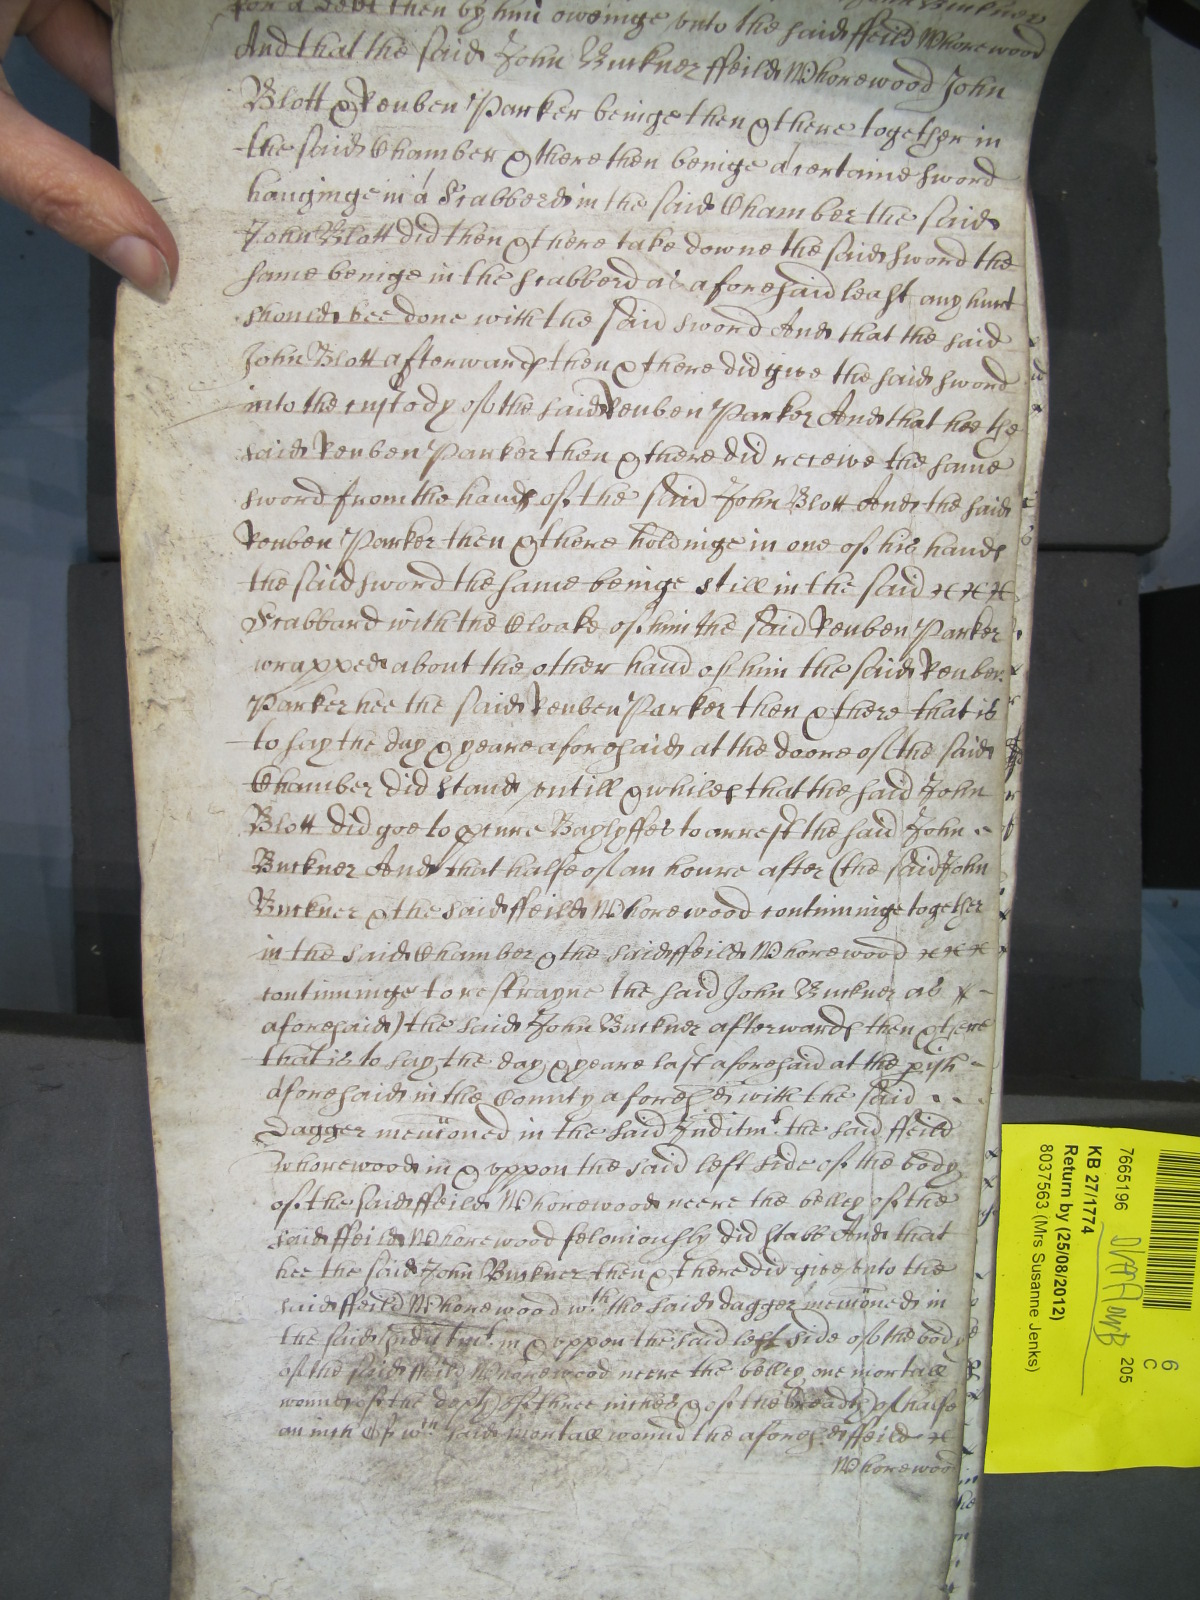 for a debt then by him oweinge vnto the said ffeild Whorewood
And that the said John Buckner ffeild Whorewood John
Blott & Reuben Parker beinge then & there together in
the said Chamber & there then beinge a certaine sword
hanginge in a Scabberd in the said Chamber the said
John Blott did then & there take downe the said sword the
same beinge in the scabberd as aforesaid least any hurt
should bee done with the said sword And that the said
John Blott afterwards then & there did give the said sword
into the custody of the said Reuben Parker And that hee the
said Reuben Parker then & there did receive the same
sword from the hands of the said John Blott And the said
Reuben Parker then & there holdinge in one of his hands
the said sword the same beinge still in the said x x x
Scabbard with the Cloake of him the said Reuben Parker
wrapped about the other hand of him the said Reuben
Parker hee the said Reuben Parker then & there that is
to say the day & yeare aforesaid at the doore of the said
Chamber did stand vntill & whiles that the said John
Blott did goe to pcure Baylyffes to arrest the said John
Buckner And that halfe of an houre after (the said John
Buckner & the said ffeild Whorewood continuinge together
in the said Chamber & the said ffeild Whorewood x x x
continuinge to restrayne the said John Buckner as x
aforesaid) the said John Buckner afterwards then & there
that is to say the day & yeare last aforesaid at the pish
aforesaid in the County aforesd with the said
dagger mencioned in the said Inditmt the said ffeild
Whorewood in & vppon the said left side of the body
of the said ffeild Whorewood neere the belley of the
said ffeild Whorewood feloniously did stabb And that
hee the said John Buckner then & there did give vnto the
said ffeild Whorewood wth the said dagger mencioned in
the said Inditmt in & vppon the said left side of the body
of the said ffeild Whorewood neere the belley one mortall
wound of the depth of three inches & of the breadth of halfe
an inch Of wch said mortall wound the aforesd ffeild x
Whorewood
7665196
KB 27/1774
Return by (25/08/2012)
8037563 (Mrs Susanne Jenks)
6
C
205